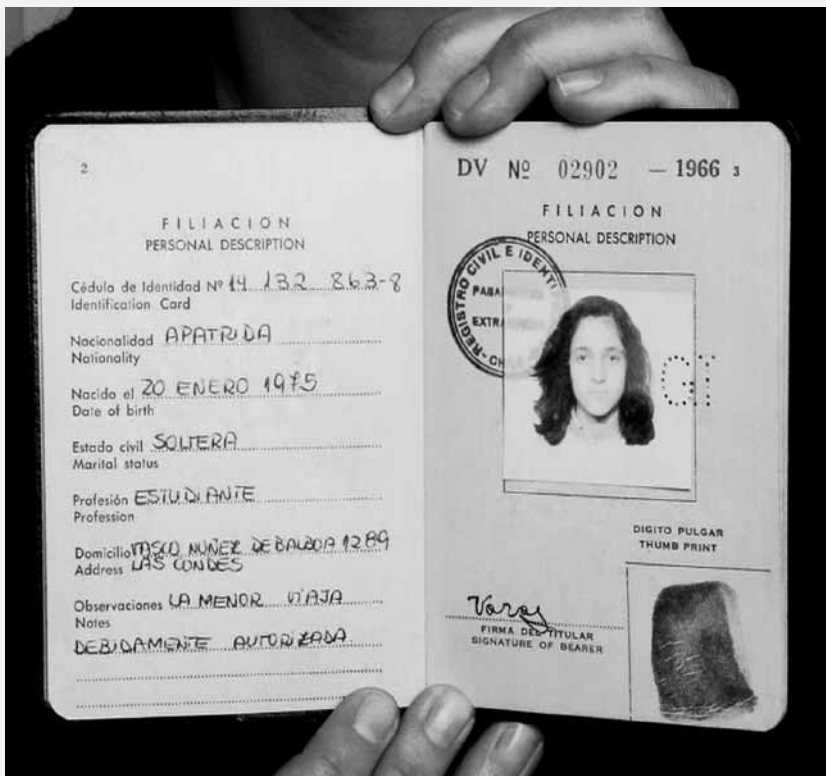 2
FILIACION
PERSONAL DESCRIPTION
Cédula de Identidad Nº 14 132 863-8
Identification Card
Nacionalidad APATRIDA
Nationality
Nacido el 20 ENERO 1975
Date of birth
Estado civil SOLTERA
Marital status
Profesión ESTUDIANTE
Profession
Domicilio VASCO NUÑEZ DE BALBOA 1289
Address LAS CONDES
Observaciones LA MENOR VIAJA
Notes
DEBIDAMENTE AUTORIZADA
DV Nº 02902 - 1966 3
FILIACION
PERSONAL DESCRIPTION
REGISTRO CIVIL E IDENTI
EXTRA
GT
DIGITO PULGAR
THUMB PRINT
FIRMA DEL TITULAR
SIGNATURE OF BEARER